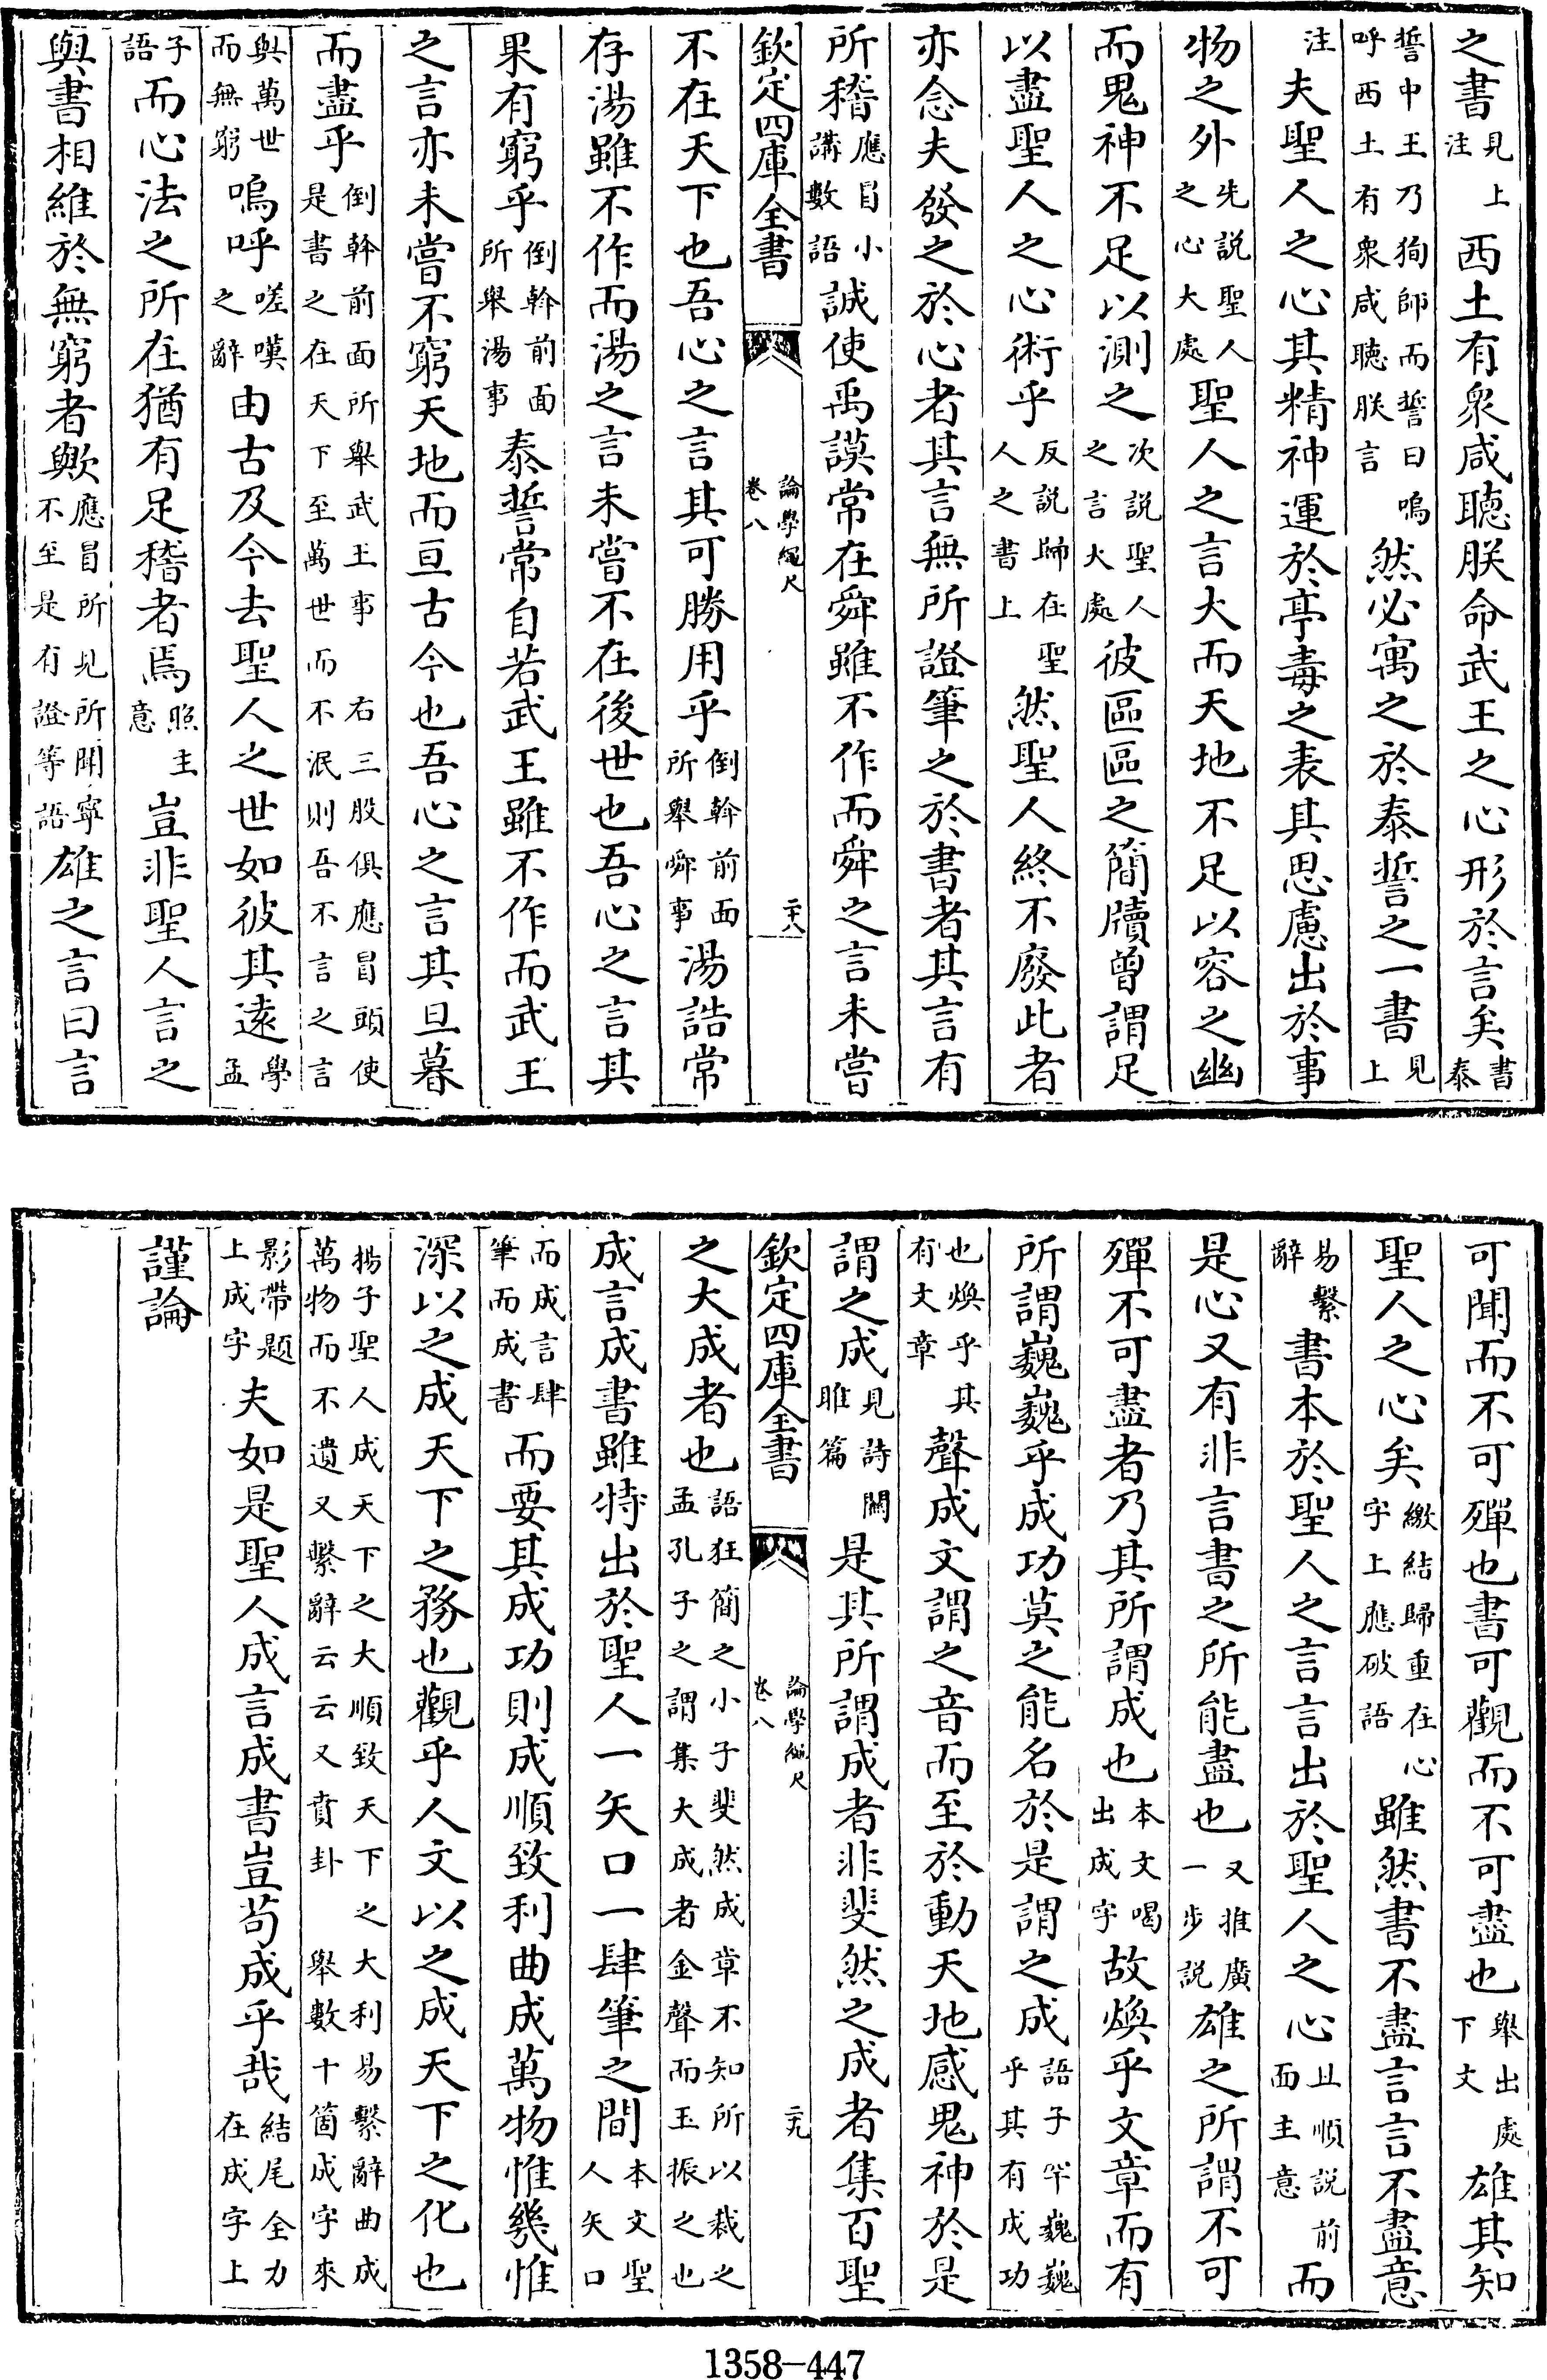 之書見上注西土有衆咸聽朕命武王之心形於言矣書泰
誓中王乃狥師而誓曰嗚呼西土有衆咸聽朕言然必寓之於泰誓之一書見上
注夫聖人之心其精神運於亭毒之表其思慮出於事
物之外先説聖人之心大處聖人之言大而天地不足以容之幽
而鬼神不足以測之次説聖人之言大處彼區區之簡牘曾謂足
以盡聖人之心術乎反説歸在聖人之書上然聖人終不廢此者
亦念夫發之於心者其言無所證筆之於書者其言有
所稽應冒小講數語誠使禹謨常在舜雖不作而舜之言未嘗
欽定四庫全書 論學繩尺 卷八 二十八
不在天下也吾心之言其可勝用乎倒斡前面所舉舜事湯誥常
存湯雖不作而湯之言未嘗不在後世也吾心之言其
果有窮乎倒斡前面所舉湯事泰誓常自若武王雖不作而武王
之言亦未嘗不窮天地而亘古今也吾心之言其旦暮
而盡乎倒斡前面所舉武王事是書之在天下至萬世而不泯則吾不言之言右三股俱應冒頭使
與萬世而無窮嗚呼嗟嘆之辭由古及今去聖人之世如彼其遠學孟
子語而心法之所在猶有足稽者焉照主意豈非聖人言之
與書相維於無窮者歟應冒所見所聞寧不至是有證等語雄之言曰言
可聞而不可殫也書可觀而不可盡也舉出處下文雄其知
聖人之心矣繳結歸重在心字上應破語雖然書不盡言言不盡意
易繫辭書本於聖人之言言出於聖人之心且順説前面主意而
是心又有非言書之所能盡也又推廣一步説雄之所謂不可
殫不可盡者乃其所謂成也本文喝出成字故煥乎文章而有
所謂巍巍乎成功莫之能名於是謂之成語子罕巍巍乎其有成功
也煥乎其有文章聲成文謂之音而至於動天地感鬼神於是
謂之成見詩關雎篇是其所謂成者非斐然之成者集百聖
欽定四庫全書 論學繩尺 卷八 二十九
之大成者也語狂簡之小子斐然成章不知所以裁之孟孔子之謂集大成者金聲而玉振之也
成言成書雖特出於聖人一矢口一肆筆之間本文聖人矢口
而成言肆筆而成書而要其成功則成順致利曲成萬物惟幾惟
深以之成天下之務也觀乎人文以之成天下之化也
揚子聖人成天下之大順致天下之大利易繫辭曲成萬物而不遺又繫辭云云又賁卦舉數十箇成字來
影帶題上成字夫如是聖人成言成書豈苟成乎哉結尾全力在成字上
謹論
1358-447